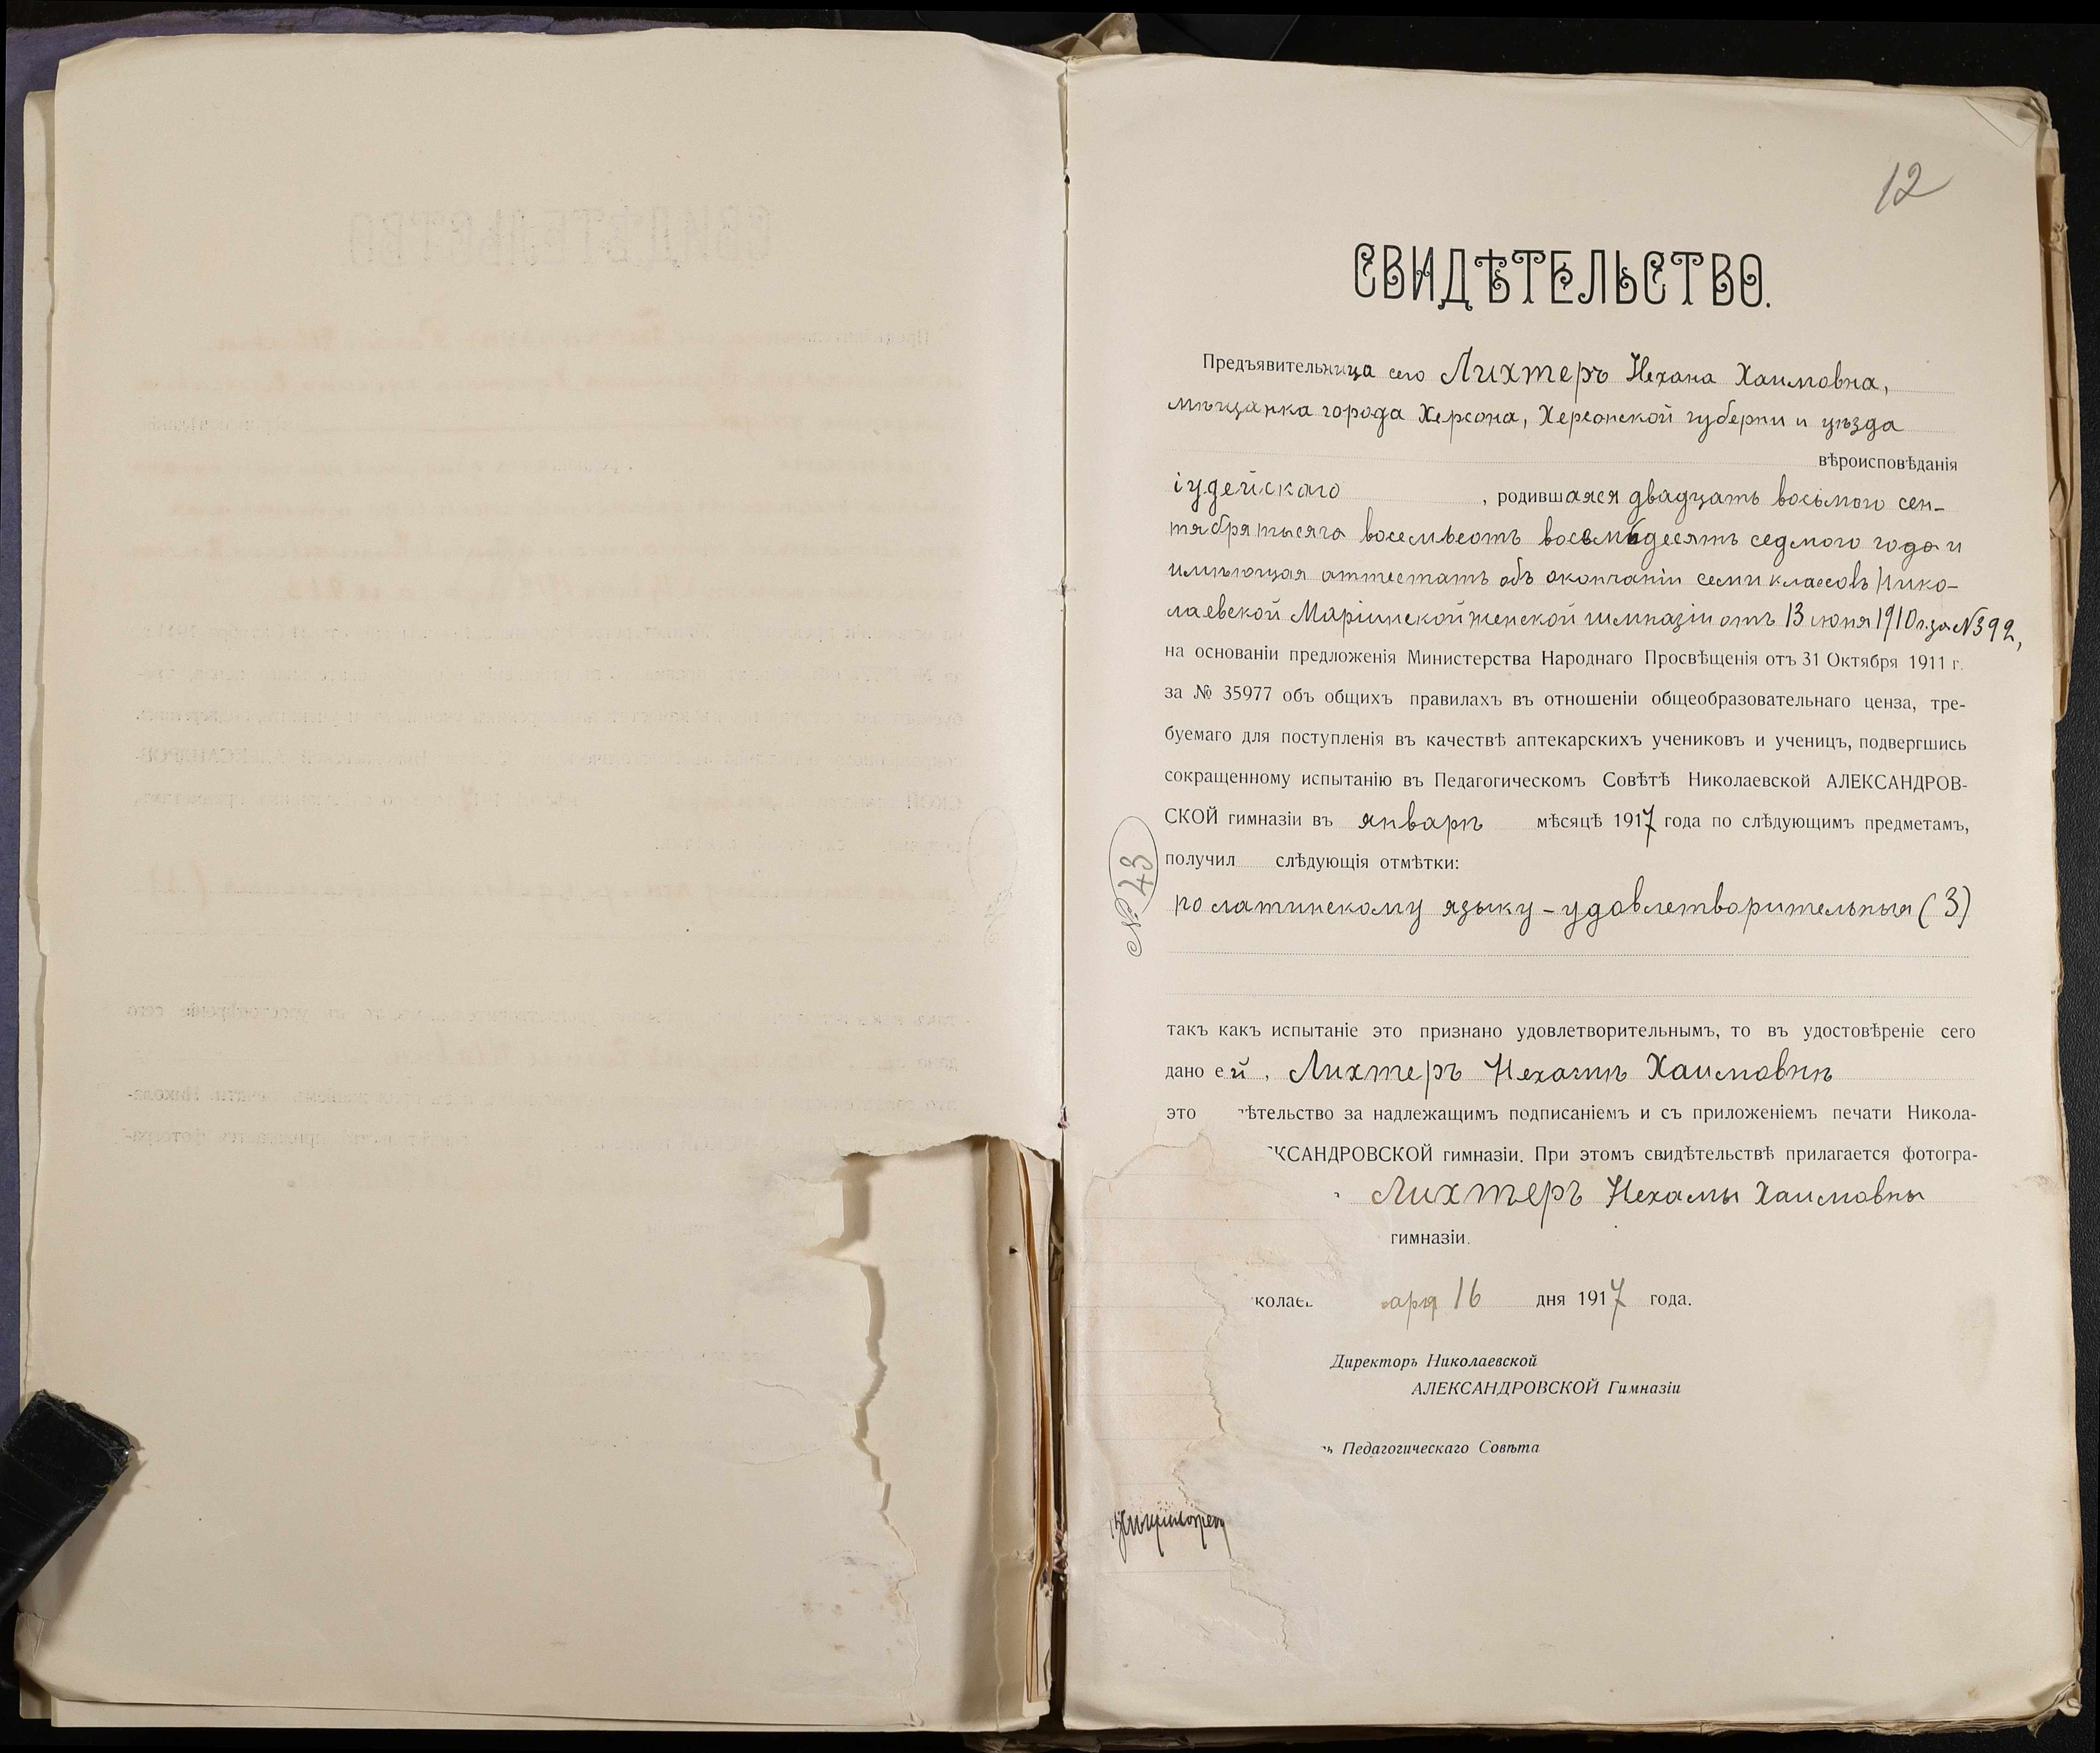 12
СВИДѢТЕЛЬСТВО.
Предъявительница сего Лихтеръ Нехана Хаимовна,
мѣщанка города Херсона, Херсонской губерни и уѣзда
вѣроисповѣданія
іудейскаго , родившаяся двадцать восьмого сен-
тября тысяча восемьсотъ восемьдесятъ седмого года и
имѣющая аттестатъ объ окончаніи семи классовъ Нико-
лаевской Маріинской женской гимназіи отъ 13 июня 1910 г. за № 392,
на основаніи предложенія Министерства Народнаго Просвѣщенія отъ 31 Октября 1911 г.
за № 35977 объ общихъ правилахъ въ отношеніи общеобразовательнаго ценза, тре-
буемаго для поступленія въ качествѣ аптекарскихъ учениковъ и ученицъ, подвергшись
сокращенному испытанію въ Педагогическомъ Совѣтѣ Николаевской АЛЕКСАНДРОВ-
СКОЙ гимназіи въ январѣ мѣсяцѣ 1917 года по слѣдующимъ предметамъ,
получил слѣдующія отмѣтки:
№ 43
по латинскому языку - удовлетворительныя (3)
такъ какъ испытаніе это признано удовлетворительнымъ, то въ удостовѣреніе сего
дано ей, Лихтеръ Нехамѣ Хаимовнѣ
это ѣтельство за надлежащимъ подписаніемъ и съ приложеніемъ печати Никола-
КСАНДРОВСКОЙ гимназіи. При этомъ свидѣтельствѣ прилагается фотогра-
Лихтеръ Нехамы Хаимовны
гимназіи.
колае аря 16 дня 1917 года.
Директоръ Николаевской
АЛЕКСАНДРОВСКОЙ Гимназіи
ь Педагогическаго Совѣта